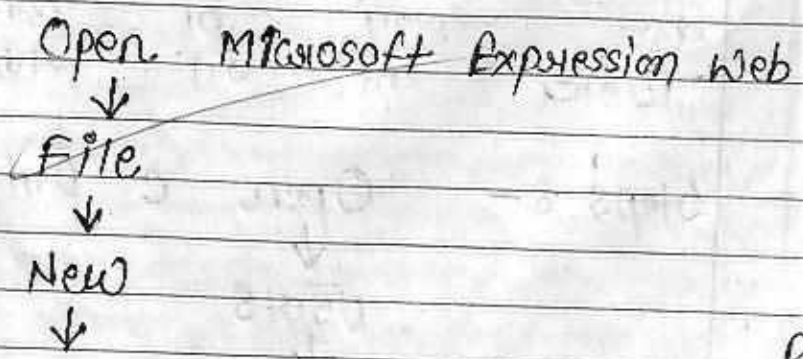 Open Microsoft Expression Web
↓
File
↓
New
↓